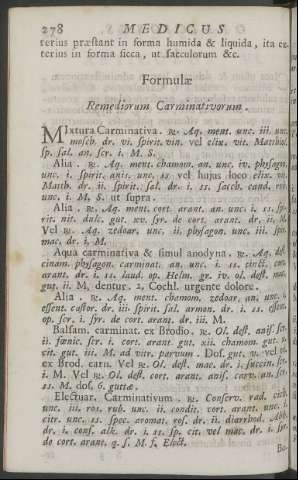 278 MEDICUS
terius præstant in forma humida & liquida, ita ex-
terius in forma sicca, ut sacculorum &c.
Formulæ
Remediorum Carminativorum.
MIxtura Carminativa. ℞. Aq. ment. unc. iii. unc.
mosch. dr. vi. spirit. vin. vel elix. vit. Matthiol.
sp. sal. an. scr. i. M. S.
Alia. ℞. Aq. ment. chamom. an. unc. iv. physagon.
unc. i. spirit. anis. unc. ss. vel hujus loco elix. vit.
Matth. dr. ii. spirit. sal. dr. i. ss. sacch. cand.
unc. i. M. S. ut supra.
Alia. ℞. Aq. ment. cort. arant. an. unc. i. ss.
rit. nit. dulc. gut. xv. syr. de cort. arant. dr. ii. M.
Vel ℞. Aq. zedoar. unc. ii. physagon. unc. iii. spir.
mac. dr. i. M.
Aqua carminativa & simul anodyna. ℞. Aq.
cinam. physagon. carminat. an. unc. i. ss. tinct.
arant. dr. i. ss. laud. op. Helm. gr. iv. ol. dest. mac.
gut. ii. M. dentur. 2. Cochl. urgente dolore.
Alia. ℞. Aq. ment. chamom. zedoar. an. unc.
essent. castor. dr. iii. spirit. sal. armon. dr. i. ss. essent.
op. scr. i. syr. de cort. arant. dr. iii. M.
Balsam. carminat. ex Brodio. ℞. Ol. dest. anis. scr.
ii. fœnic. scr. i. cort. arant. gut. xii. chamom. gut.
cit. gut. iii. M. ad vitr. parvum. Dos. gut. v. vel
ex Brod. carn. Vel ℞. Ol. dest. mac. dr. i. succin. scr.
i. M. Vel ℞. Ol. dest. cort. arant. anis. carv. an. scr.
ss. M. dos. 6. guttæ.
Electuar. Carminativum. ℞. Conserv. rad.
unc. iii. ros. rub. unc. ii. condit. cort. arant. unc.
citr. unc. ss. spec. aromat. ros. dr. ii. diarrhod. Abb.
dr. i. conf. alk. dr. i. ss. sp. cit. vel mac. dr. i. syr.
do cort. arant. q. s. M. f. Elect.